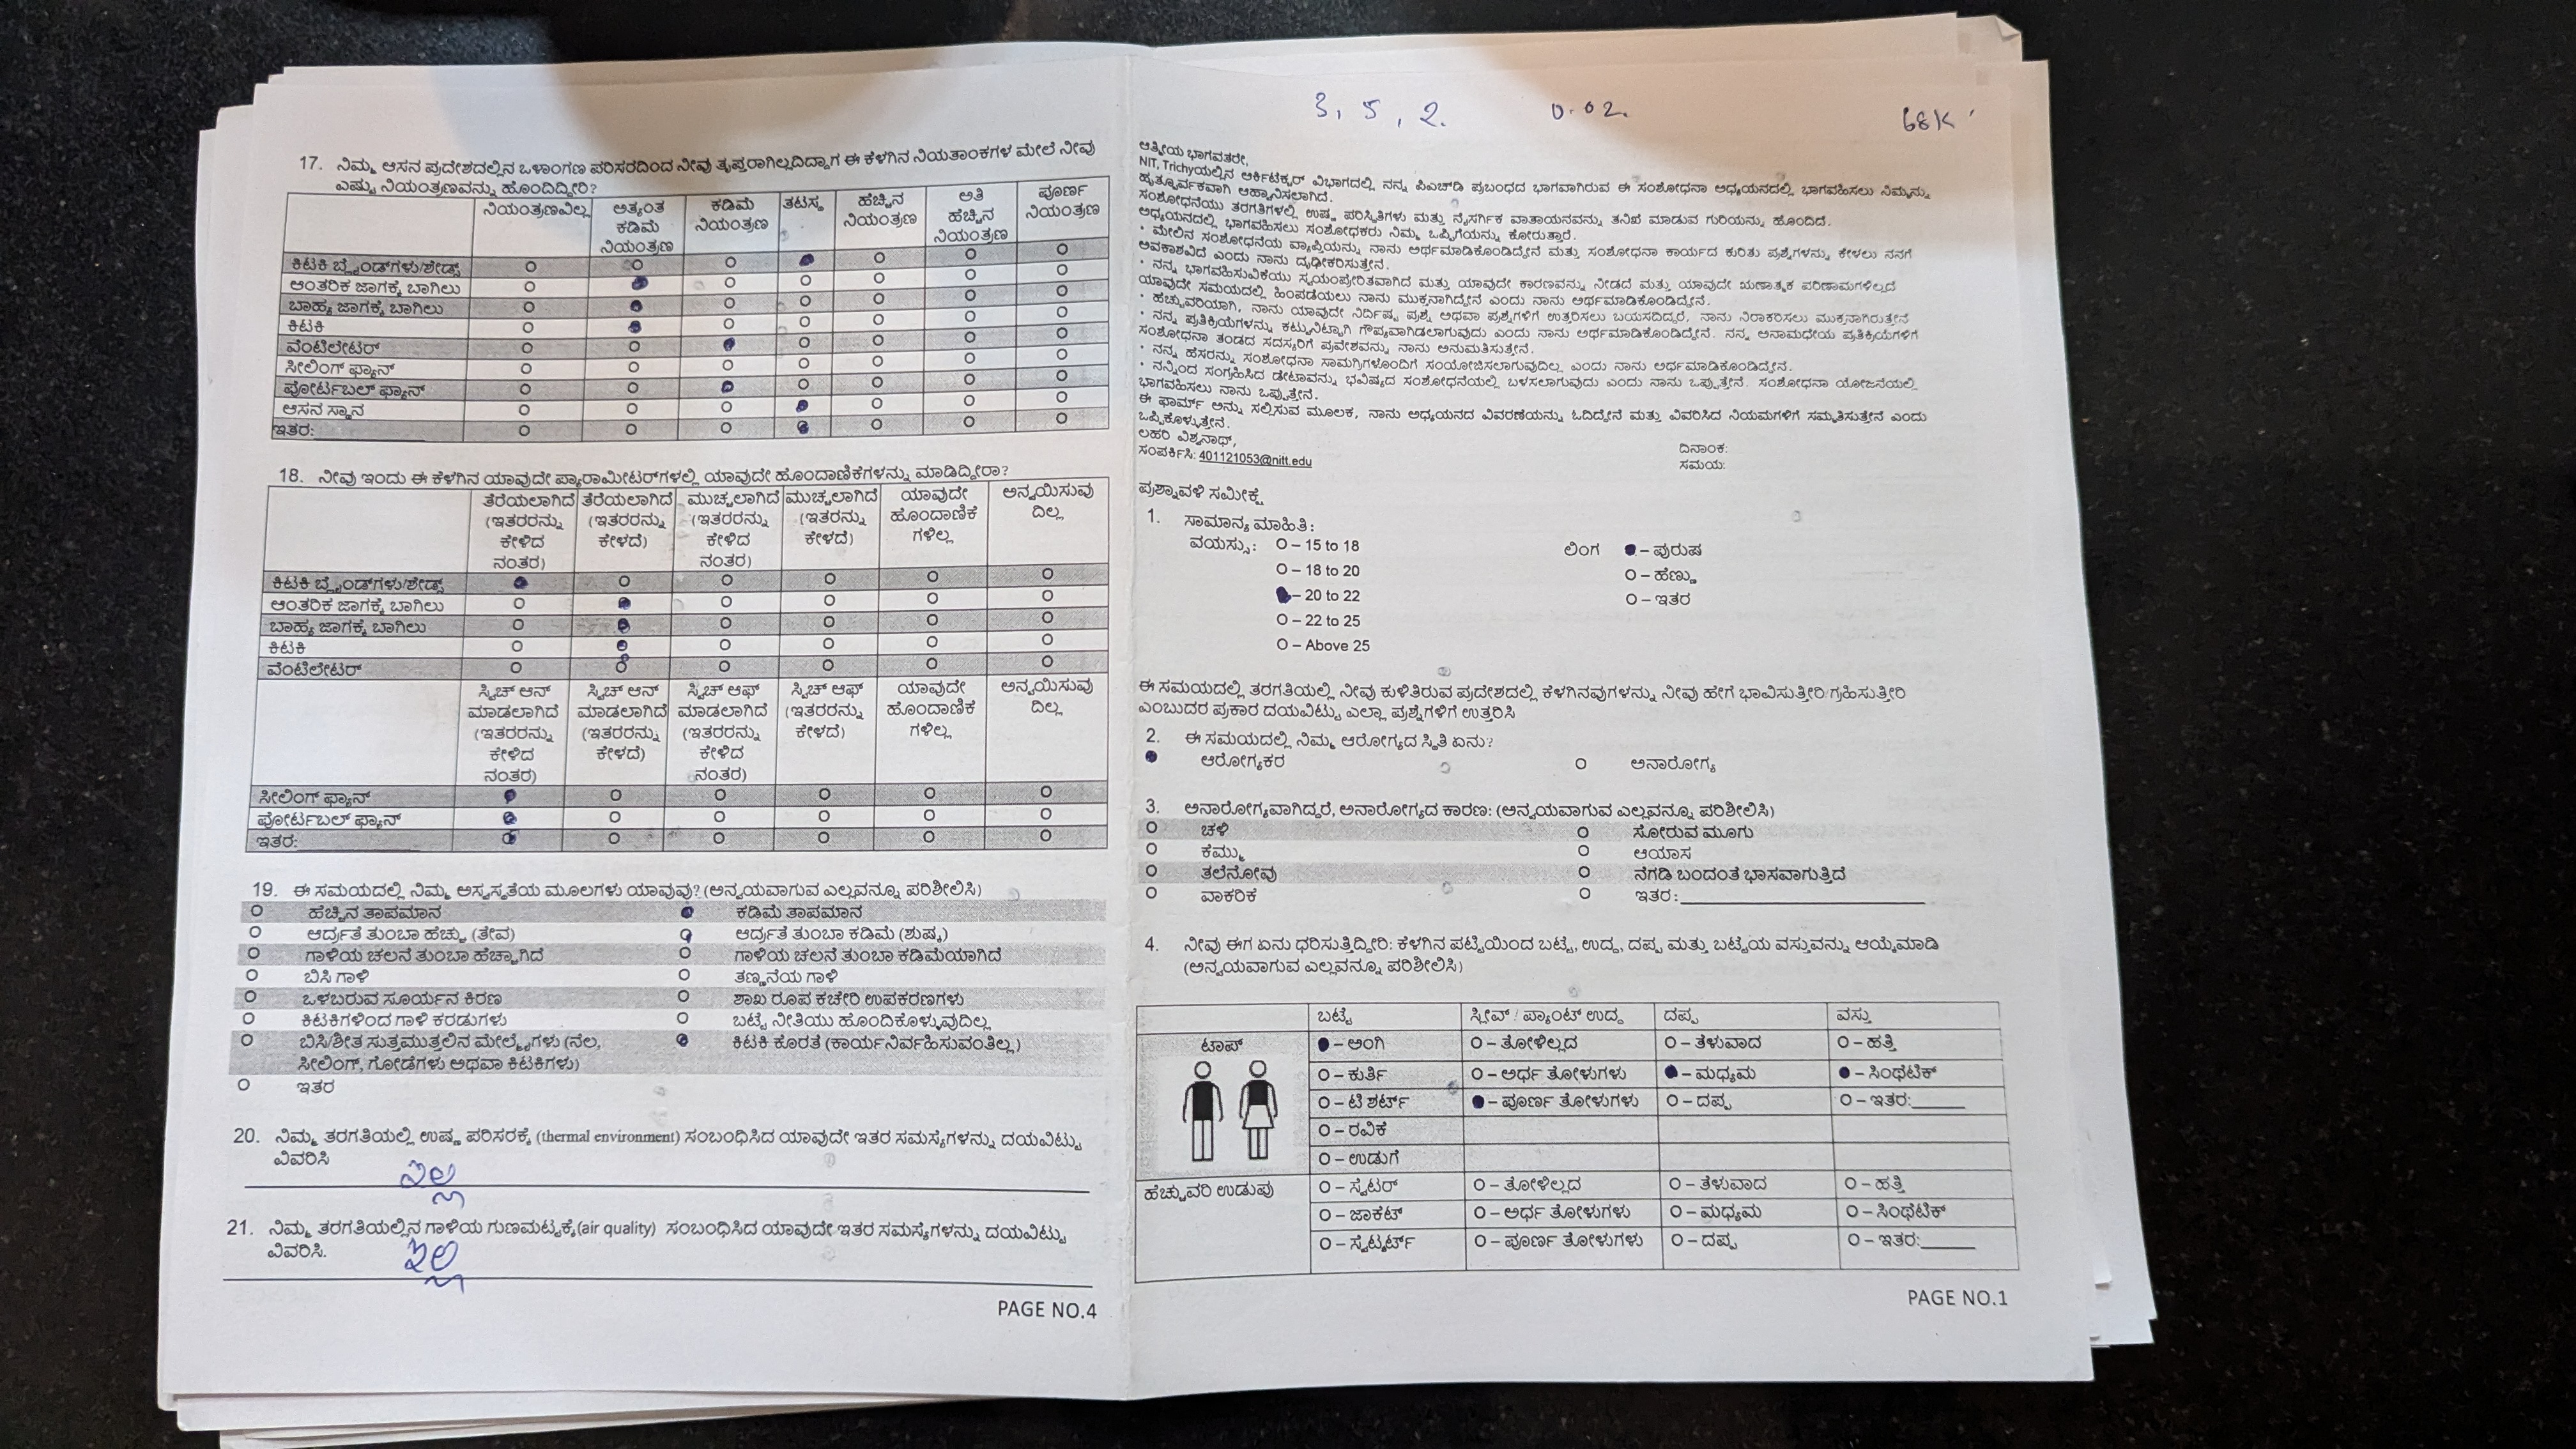 17. ನಿಮ್ಮ ಆಸನ ಪ್ರದೇಶದಲ್ಲಿನ ಒಳಾಂಗಣ ಪರಿಸರದಿಂದ ನೀವು ತೃಪ್ತರಾಗಿಲ್ಲದಿದ್ದಾಗ ಈ ಕೆಳಗಿನ ನಿಯತಾಂಕಗಳ ಮೇಲೆ ನೀವು
ಎಷ್ಟು ನಿಯಂತ್ರಣವನ್ನು ಹೊಂದಿದ್ದೀರಿ?
ನಿಯಂತ್ರಣವಿಲ್ಲ ಅತ್ಯಂತ ಕಡಿಮೆ ನಿಯಂತ್ರಣ ಕಡಿಮೆ ನಿಯಂತ್ರಣ ತಟಸ್ಥ ಹೆಚ್ಚಿನ ನಿಯಂತ್ರಣ ಅತಿ ಹೆಚ್ಚಿನ ನಿಯಂತ್ರಣ ಪೂರ್ಣ ನಿಯಂತ್ರಣ
ಕಿಟಕಿ ಬ್ಲೈಂಡ್‌ಗಳು/ಶೇಡ್ಸ್
ಆಂತರಿಕ ಜಾಗಕ್ಕೆ ಬಾಗಿಲು
ಬಾಹ್ಯ ಜಾಗಕ್ಕೆ ಬಾಗಿಲು
ಕಿಟಕಿ
ವೆಂಟಿಲೇಟರ್
ಸೀಲಿಂಗ್ ಫ್ಯಾನ್
ಪೋರ್ಟಬಲ್ ಫ್ಯಾನ್
ಆಸನ ಸ್ಥಾನ
ಇತರ:
18. ನೀವು ಇಂದು ಈ ಕೆಳಗಿನ ಯಾವುದೇ ಪ್ಯಾರಾಮೀಟರ್‌ಗಳಲ್ಲಿ ಯಾವುದೇ ಹೊಂದಾಣಿಕೆಗಳನ್ನು ಮಾಡಿದ್ದೀರಾ?
ತೆರೆಯಲಾಗಿದೆ (ಇತರರನ್ನು ಕೇಳಿದ ನಂತರ) ತೆರೆಯಲಾಗಿದೆ (ಇತರರನ್ನು ಕೇಳದೆ) ಮುಚ್ಚಲಾಗಿದೆ (ಇತರರನ್ನು ಕೇಳಿದ ನಂತರ) ಮುಚ್ಚಲಾಗಿದೆ (ಇತರನ್ನು ಕೇಳದೆ) ಯಾವುದೇ ಹೊಂದಾಣಿಕೆ ಗಳಿಲ್ಲ ಅನ್ವಯಿಸುವು ದಿಲ್ಲ
ಕಿಟಕಿ ಬ್ಲೈಂಡ್‌ಗಳು/ಶೇಡ್ಸ್
ಆಂತರಿಕ ಜಾಗಕ್ಕೆ ಬಾಗಿಲು
ಬಾಹ್ಯ ಜಾಗಕ್ಕೆ ಬಾಗಿಲು
ಕಿಟಕಿ
ವೆಂಟಿಲೇಟರ್
ಸ್ವಿಚ್ ಆನ್ ಮಾಡಲಾಗಿದೆ (ಇತರರನ್ನು ಕೇಳಿದ ನಂತರ) ಸ್ವಿಚ್ ಆನ್ ಮಾಡಲಾಗಿದೆ (ಇತರರನ್ನು ಕೇಳದೆ) ಸ್ವಿಚ್ ಆಫ್ ಮಾಡಲಾಗಿದೆ (ಇತರರನ್ನು ಕೇಳಿದ ನಂತರ) ಸ್ವಿಚ್ ಆಫ್ (ಇತರರನ್ನು ಕೇಳದೆ) ಯಾವುದೇ ಹೊಂದಾಣಿಕೆ ಗಳಿಲ್ಲ ಅನ್ವಯಿಸುವು ದಿಲ್ಲ
ಸೀಲಿಂಗ್ ಫ್ಯಾನ್
ಪೋರ್ಟಬಲ್ ಫ್ಯಾನ್
ಇತರ:
19. ಈ ಸಮಯದಲ್ಲಿ ನಿಮ್ಮ ಅಸ್ವಸ್ಥತೆಯ ಮೂಲಗಳು ಯಾವುವು? (ಅನ್ವಯವಾಗುವ ಎಲ್ಲವನ್ನೂ ಪರಿಶೀಲಿಸಿ)
ಹೆಚ್ಚಿನ ತಾಪಮಾನ ಕಡಿಮೆ ತಾಪಮಾನ
ಆರ್ದ್ರತೆ ತುಂಬಾ ಹೆಚ್ಚು (ತೇವ) ಆರ್ದ್ರತೆ ತುಂಬಾ ಕಡಿಮೆ (ಶುಷ್ಕ)
ಗಾಳಿಯ ಚಲನೆ ತುಂಬಾ ಹೆಚ್ಚಾಗಿದೆ ಗಾಳಿಯ ಚಲನೆ ತುಂಬಾ ಕಡಿಮೆಯಾಗಿದೆ
ಬಿಸಿ ಗಾಳಿ ತಣ್ಣನೆಯ ಗಾಳಿ
ಒಳಬರುವ ಸೂರ್ಯನ ಕಿರಣ ಶಾಖ ರೂಪ ಕಚೇರಿ ಉಪಕರಣಗಳು
ಕಿಟಕಿಗಳಿಂದ ಗಾಳಿ ಕರಡುಗಳು ಬಟ್ಟೆ ನೀತಿಯು ಹೊಂದಿಕೊಳ್ಳುವುದಿಲ್ಲ
ಬಿಸಿ/ಶೀತ ಸುತ್ತಮುತ್ತಲಿನ ಮೇಲ್ಮೈಗಳು (ನೆಲ, ಕಿಟಕಿ ಕೊರತೆ (ಕಾರ್ಯನಿರ್ವಹಿಸುವಂತಿಲ್ಲ)
ಸೀಲಿಂಗ್, ಗೋಡೆಗಳು ಅಥವಾ ಕಿಟಕಿಗಳು)
ಇತರ
20. ನಿಮ್ಮ ತರಗತಿಯಲ್ಲಿ ಉಷ್ಣ ಪರಿಸರಕ್ಕೆ (thermal environment) ಸಂಬಂಧಿಸಿದ ಯಾವುದೇ ಇತರ ಸಮಸ್ಯೆಗಳನ್ನು ದಯವಿಟ್ಟು
ವಿವರಿಸಿ
ಇಲ್ಲ
21. ನಿಮ್ಮ ತರಗತಿಯಲ್ಲಿನ ಗಾಳಿಯ ಗುಣಮಟ್ಟಕ್ಕೆ(air quality) ಸಂಬಂಧಿಸಿದ ಯಾವುದೇ ಇತರ ಸಮಸ್ಯೆಗಳನ್ನು ದಯವಿಟ್ಟು
ವಿವರಿಸಿ.
ಇಲ್ಲ
PAGE NO.4
3, 5, 2. 0.02. 68K
ಆತ್ಮೀಯ ಭಾಗವತರೇ,
NIT, Trichyಯಲ್ಲಿನ ಆರ್ಕಿಟೆಕ್ಚರ್ ವಿಭಾಗದಲ್ಲಿ ನನ್ನ ಪಿಎಚ್‌ಡಿ ಪ್ರಬಂಧದ ಭಾಗವಾಗಿರುವ ಈ ಸಂಶೋಧನಾ ಅಧ್ಯಯನದಲ್ಲಿ ಭಾಗವಹಿಸಲು ನಿಮ್ಮನ್ನು
ಹೃತ್ಪೂರ್ವಕವಾಗಿ ಆಹ್ವಾನಿಸಲಾಗಿದೆ.
ಸಂಶೋಧನೆಯು ತರಗತಿಗಳಲ್ಲಿ ಉಷ್ಣ ಪರಿಸ್ಥಿತಿಗಳು ಮತ್ತು ನೈಸರ್ಗಿಕ ವಾತಾಯನವನ್ನು ತನಿಖೆ ಮಾಡುವ ಗುರಿಯನ್ನು ಹೊಂದಿದೆ.
ಅಧ್ಯಯನದಲ್ಲಿ ಭಾಗವಹಿಸಲು ಸಂಶೋಧಕರು ನಿಮ್ಮ ಒಪ್ಪಿಗೆಯನ್ನು ಕೋರುತ್ತಾರೆ.
• ಮೇಲಿನ ಸಂಶೋಧನೆಯ ವ್ಯಾಪ್ತಿಯನ್ನು ನಾನು ಅರ್ಥಮಾಡಿಕೊಂಡಿದ್ದೇನೆ ಮತ್ತು ಸಂಶೋಧನಾ ಕಾರ್ಯದ ಕುರಿತು ಪ್ರಶ್ನೆಗಳನ್ನು ಕೇಳಲು ನನಗೆ
ಅವಕಾಶವಿದೆ ಎಂದು ನಾನು ದೃಢೀಕರಿಸುತ್ತೇನೆ.
• ನನ್ನ ಭಾಗವಹಿಸುವಿಕೆಯು ಸ್ವಯಂಪ್ರೇರಿತವಾಗಿದೆ ಮತ್ತು ಯಾವುದೇ ಕಾರಣವನ್ನು ನೀಡದೆ ಮತ್ತು ಯಾವುದೇ ಋಣಾತ್ಮಕ ಪರಿಣಾಮಗಳಿಲ್ಲದೆ
ಯಾವುದೇ ಸಮಯದಲ್ಲಿ ಹಿಂಪಡೆಯಲು ನಾನು ಮುಕ್ತನಾಗಿದ್ದೇನೆ ಎಂದು ನಾನು ಅರ್ಥಮಾಡಿಕೊಂಡಿದ್ದೇನೆ.
• ಹೆಚ್ಚುವರಿಯಾಗಿ, ನಾನು ಯಾವುದೇ ನಿರ್ದಿಷ್ಟ ಪ್ರಶ್ನೆ ಅಥವಾ ಪ್ರಶ್ನೆಗಳಿಗೆ ಉತ್ತರಿಸಲು ಬಯಸದಿದ್ದರೆ, ನಾನು ನಿರಾಕರಿಸಲು ಮುಕ್ತನಾಗಿರುತ್ತೇನೆ
• ನನ್ನ ಪ್ರತಿಕ್ರಿಯೆಗಳನ್ನು ಕಟ್ಟುನಿಟ್ಟಾಗಿ ಗೌಪ್ಯವಾಗಿಡಲಾಗುವುದು ಎಂದು ನಾನು ಅರ್ಥಮಾಡಿಕೊಂಡಿದ್ದೇನೆ. ನನ್ನ ಅನಾಮಧೇಯ ಪ್ರತಿಕ್ರಿಯೆಗಳಿಗೆ
ಸಂಶೋಧನಾ ತಂಡದ ಸದಸ್ಯರಿಗೆ ಪ್ರವೇಶವನ್ನು ನಾನು ಅನುಮತಿಸುತ್ತೇನೆ.
• ನನ್ನ ಹೆಸರನ್ನು ಸಂಶೋಧನಾ ಸಾಮಗ್ರಿಗಳೊಂದಿಗೆ ಸಂಯೋಜಿಸಲಾಗುವುದಿಲ್ಲ ಎಂದು ನಾನು ಅರ್ಥಮಾಡಿಕೊಂಡಿದ್ದೇನೆ.
• ನನ್ನಿಂದ ಸಂಗ್ರಹಿಸಿದ ಡೇಟಾವನ್ನು ಭವಿಷ್ಯದ ಸಂಶೋಧನೆಯಲ್ಲಿ ಬಳಸಲಾಗುವುದು ಎಂದು ನಾನು ಒಪ್ಪುತ್ತೇನೆ. ಸಂಶೋಧನಾ ಯೋಜನೆಯಲ್ಲಿ
ಭಾಗವಹಿಸಲು ನಾನು ಒಪ್ಪುತ್ತೇನೆ.
ಈ ಫಾರ್ಮ್ ಅನ್ನು ಸಲ್ಲಿಸುವ ಮೂಲಕ, ನಾನು ಅಧ್ಯಯನದ ವಿವರಣೆಯನ್ನು ಓದಿದ್ದೇನೆ ಮತ್ತು ವಿವರಿಸಿದ ನಿಯಮಗಳಿಗೆ ಸಮ್ಮತಿಸುತ್ತೇನೆ ಎಂದು
ಒಪ್ಪಿಕೊಳ್ಳುತ್ತೇನೆ.
ಲಹರಿ ವಿಶ್ವನಾಥ್, ದಿನಾಂಕ:
ಸಂಪರ್ಕಿಸಿ: 401121053@nitt.edu ಸಮಯ:
ಪ್ರಶ್ನಾವಳಿ ಸಮೀಕ್ಷೆ
1. ಸಾಮಾನ್ಯ ಮಾಹಿತಿ:
ವಯಸ್ಸು: O – 15 to 18 ಲಿಂಗ – ಪುರುಷ
O – 18 to 20 O – ಹೆಣ್ಣು
– 20 to 22 O – ಇತರ
O – 22 to 25
O – Above 25
ಈ ಸಮಯದಲ್ಲಿ ತರಗತಿಯಲ್ಲಿ ನೀವು ಕುಳಿತಿರುವ ಪ್ರದೇಶದಲ್ಲಿ ಕೆಳಗಿನವುಗಳನ್ನು ನೀವು ಹೇಗೆ ಭಾವಿಸುತ್ತೀರಿ/ಗ್ರಹಿಸುತ್ತೀರಿ
ಎಂಬುದರ ಪ್ರಕಾರ ದಯವಿಟ್ಟು ಎಲ್ಲಾ ಪ್ರಶ್ನೆಗಳಿಗೆ ಉತ್ತರಿಸಿ
2. ಈ ಸಮಯದಲ್ಲಿ ನಿಮ್ಮ ಆರೋಗ್ಯದ ಸ್ಥಿತಿ ಏನು?
ಆರೋಗ್ಯಕರ O ಅನಾರೋಗ್ಯ
3. ಅನಾರೋಗ್ಯವಾಗಿದ್ದರೆ, ಅನಾರೋಗ್ಯದ ಕಾರಣ: (ಅನ್ವಯವಾಗುವ ಎಲ್ಲವನ್ನೂ ಪರಿಶೀಲಿಸಿ)
ಚಳಿ ಸೋರುವ ಮೂಗು
ಕೆಮ್ಮು ಆಯಾಸ
ತಲೆನೋವು ನೆಗಡಿ ಬಂದಂತೆ ಭಾಸವಾಗುತ್ತಿದೆ
ವಾಕರಿಕೆ ಇತರ:
4. ನೀವು ಈಗ ಏನು ಧರಿಸುತ್ತಿದ್ದೀರಿ: ಕೆಳಗಿನ ಪಟ್ಟಿಯಿಂದ ಬಟ್ಟೆ, ಉದ್ದ, ದಪ್ಪ ಮತ್ತು ಬಟ್ಟೆಯ ವಸ್ತುವನ್ನು ಆಯ್ಕೆಮಾಡಿ
(ಅನ್ವಯವಾಗುವ ಎಲ್ಲವನ್ನೂ ಪರಿಶೀಲಿಸಿ)
ಬಟ್ಟೆ ಸ್ಲೀವ್ / ಪ್ಯಾಂಟ್ ಉದ್ದ ದಪ್ಪ ವಸ್ತು
ಟಾಪ್ – ಅಂಗಿ O – ತೋಳಿಲ್ಲದ O – ತೆಳುವಾದ O – ಹತ್ತಿ
O – ಕುರ್ತಿ O – ಅರ್ಧ ತೋಳುಗಳು – ಮಧ್ಯಮ – ಸಿಂಥೆಟಿಕ್
O – ಟಿ ಶರ್ಟ್ – ಪೂರ್ಣ ತೋಳುಗಳು O – ದಪ್ಪ O – ಇತರ:
O – ರವಿಕೆ
O – ಉಡುಗೆ
ಹೆಚ್ಚುವರಿ ಉಡುಪು O – ಸ್ವೆಟರ್ O – ತೋಳಿಲ್ಲದ O – ತೆಳುವಾದ O – ಹತ್ತಿ
O – ಜಾಕೆಟ್ O – ಅರ್ಧ ತೋಳುಗಳು O – ಮಧ್ಯಮ O – ಸಿಂಥೆಟಿಕ್
O – ಸ್ವೆಟ್ಶರ್ಟ್ O – ಪೂರ್ಣ ತೋಳುಗಳು O – ದಪ್ಪ O – ಇತರ:
PAGE NO.1